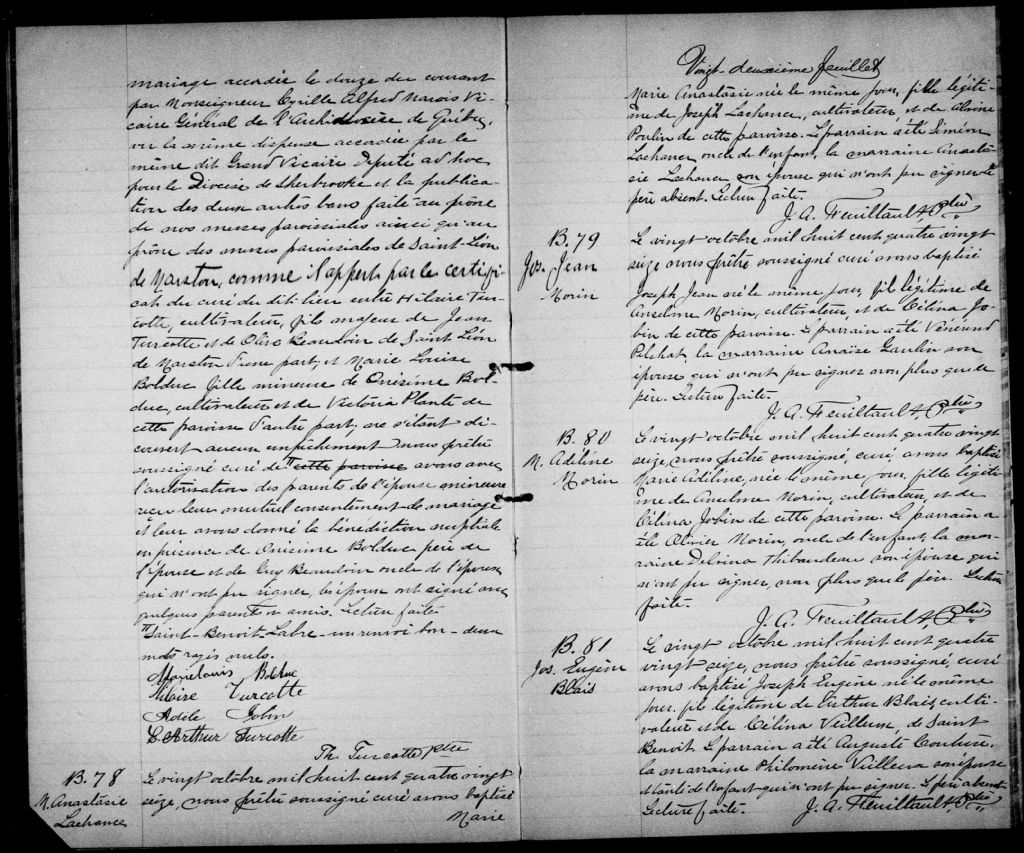 mariage accordée le douze du courant
par Monseigneur Cyrille Alfred Marois Vi-
caire Général de l'Archidiocèse de Québec,
vu la même dispense accordée par le
même dit Grand Vicaire Député ad hoc
pour le Diocèse de Sherbrooke et la publica-
tion des deux autres bans faite au prône
de nos messes paroissiales ainsi qu'au
prône des messes paroissiales de Saint-Léon
de Marston, comme il appert par le certifi-
cat du curé du dit lieu entre Hilaire Tur-
cotte, cultivateur, fils majeur de Jean
Turcotte et de Olive Beaudoin de Saint Léon
de Marston d'une part, et Marie Louise
Bolduc fille mineure de Onésime Bol-
duc, cultivateur et de Victoria Plante de
cette paroisse d'autre part; ne s'étant dé-
couvert aucun empêchement nous prêtre
soussigné curé de cette paroisse avons avec
l'autorisation des parents de l'épouse mineure
reçu leur mutuel consentement de mariage
et leur avons donné la bénédiction nuptiale
en présence de Onésime Bolduc père de
l'épouse et de Guy Beaudoin oncle de l'époux
qui n'ont pu signer, les époux ont signé avec
quelques parents et amis. Lecture faite
Saint-Benoit-Labre - un renvoi bon - deux
mots rayés nuls.
Marie Louis Bolduc
Hilaire Turcotte
Adèle Jobin
C. Arthur Turcotte
Th. Turcotte Ptre
B. 78
M. Anastasie
Lachance
Le vingt octobre mil huit cent quatre vingt
seize, nous prêtre soussigné curé avons baptisé
Marie
Vingt-deuxième feuillet
Marie Anastasie née le même jour, fille légiti-
me de Joseph Lachance, cultivateur, et de Alvine
Poulin de cette paroisse. Le parrain a été Siméon
Lachance, oncle de l'enfant, la marraine Anasta-
sie Lachance son épouse qui n'ont pu signer le
père absent. Lecture faite.
J. A. Feuiltault, Ptre
B. 79
Jos. Jean
Morin
Le vingt octobre mil huit cent quatre vingt
seize nous prêtre soussigné curé avons baptisé
Joseph Jean né le même jour, fils légitime de
Anselme Morin, cultivateur, et de Célina Jo-
bin de cette paroisse. Le parrain a été Vénérend
Pelchat, la marraine Anaïse Gaulin son
épouse qui n'ont pu signer non plus que le
père. Lecture faite.
J. A. Feuiltault, Ptre
B. 80
M. Adéline
Morin
Le vingt octobre mil huit cent quatre vingt
seize, nous prêtre soussigné, curé avons baptisé
Marie Adéline, née le même jour, fille légiti-
me de Anselme Morin, cultivateur, et de
Célina Jobin de cette paroisse. Le parrain a
été Olivier Morin, oncle de l'enfant, la mar-
raine Delvina Thibaudeau son épouse qui
n'ont pu signer, non plus que le père. Lecture
faite.
J. A. Feuiltault, Ptre
B. 81
Jos. Eugène
Blais
Le vingt octobre mil huit cent quatre
vingt seize, nous prêtre soussigné, curé
avons baptisé Joseph Eugène né le même
jour, fils légitime de Arthur Blais, culti-
vateur et de Célina Veilleux, de Saint
Benoit. Le parrain a été Auguste Couture,
la marraine Philomène Veilleux son épouse
et tante de l'enfant qui n'ont pu signer. Le père absent
Lecture faite.
J. A. Feuiltault, Ptre